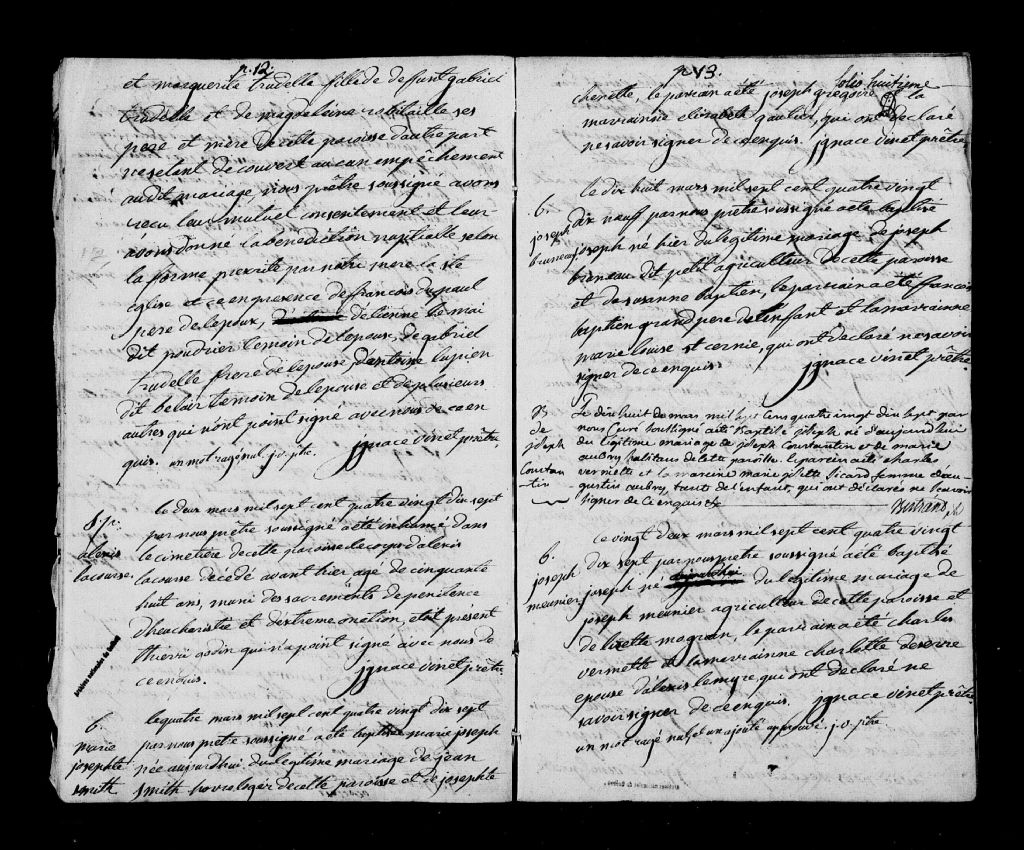 p. 12.
et marguerite trudelle fille de deffunt gabriel
trudelle et de magdeleine robitaille ses
pere et mere de cette paroisse d'autre part
ne setant decouvert aucun empêchement
audit mariage, nous prêtre soussigné avons
recu leur mutuel consentement et leur
avons donné la benediction nuptialle selon
la forme prescrite par notre mere la ste
eglise et ce en presence de francois de paul
pere de lepoux, detienne
dit poudrier temoin de lepoux, de gabriel
trudelle frere de lepouse, dantoine lupien
dit belair temoin de lepouse et de plusieurs
autres qui nont point signé avec nous de ce en
quis. un mot raye nul. ignace vinet prêtre
S.
alexis
lacourse.
le deux mars mil sept cent quatre vingt dix sept
par nous prêtre soussigné a été inhumé dans
le cimetiere de cette paroisse le corps dalexis
lacourse décédé avant hier agé de cinquante
huit ans, muni des sacrements de penitence
dheucharistie et dextreme onction, etoit présent
thierri godin qui n'a point signé avec nous de
ce enquis. ignace vinet prêtre
b.
marie
josephte
smith.
le quatre mars mil sept cent quatre vingt dix sept
par nous prêtre soussigné a été baptisée marie joseph
née aujourdhui du legitime mariage de jean
smith de cette paroisse et de josephte
p. 13.
folio huitieme
chenette, le parrain a été joseph gregoire et la
marrainne elizabeth gautier, qui ont declaré
ne savoir signer de ce enquis. ignace vinet prêtre
b.
joseph
bruneau
le dix huit mars mil sept cent quatre vingt
dix neuff par nous prêtre soussigné a été baptisé
joseph né hier du legitime mariage de joseph
bruneau dit petit agriculteur de cette paroisse
et de susanne baptien, le parrain a été francois
baptien grand pere de lenfant et la marrainne
marie louise st cernie, qui ont déclaré ne savoir
signer de ce enquis. ignace vinet prêtre
B
de
joseph
Constan
tin
Le dix huit de mars mil sept cens quatre vingt dix sept par
nous Curé soussigné a été Baptisé joseph né d'aujourdhui
du legitime mariage de joseph Constantin et de marie
aubry habitans de cette paroisse. le parein a été charles
vermette et la mareine marie josette Sicard femme d'au-
gustin aubry, tante de l'enfant, qui ont déclarés ne sçavoir
signer de ce enquis &c Bertrand
b.
joseph
meunier
le vingt deux mars mil sept cent quatre vingt
dix sept par nous prêtre soussigné a été baptisé
joseph né du legitime mariage de
joseph meunier agriculteur de cette paroisse et
de lizette mogran, le parrain a été charles
vermette et la marrainne charlotte
epouse dalexis lemyre qui ont declaré ne
savoir signer de ce enquis. ignace vinet prêtre
un mot rayé nul et un ajouté approuvé. j.v. ptre